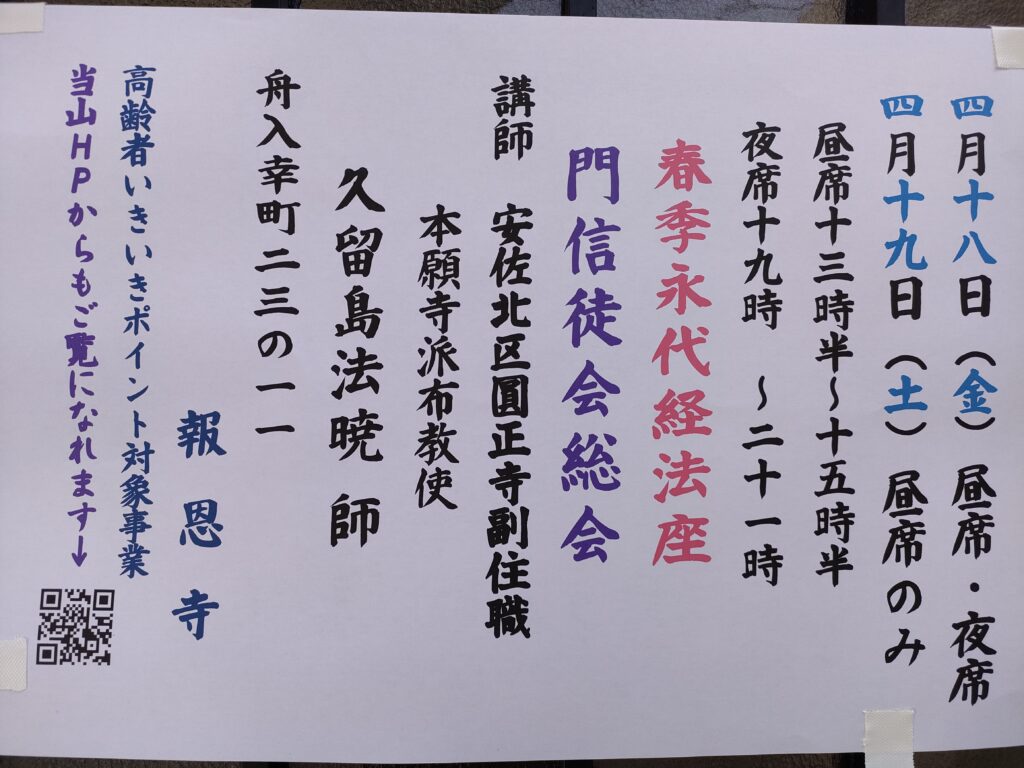 四月十八日(金)昼席・夜席
四月十九日(土)昼席のみ
昼席十三時半~十五時半
夜席十九時 ~二十一時
春季永代経法座
門信徒会総会
講師 安佐北区圓正寺副住職
本願寺派布教使
久留島法暁 師
舟入幸町二三の一一
報恩寺
高齢者いきいきポイント対象事業
当山HPからもご覧になれます→